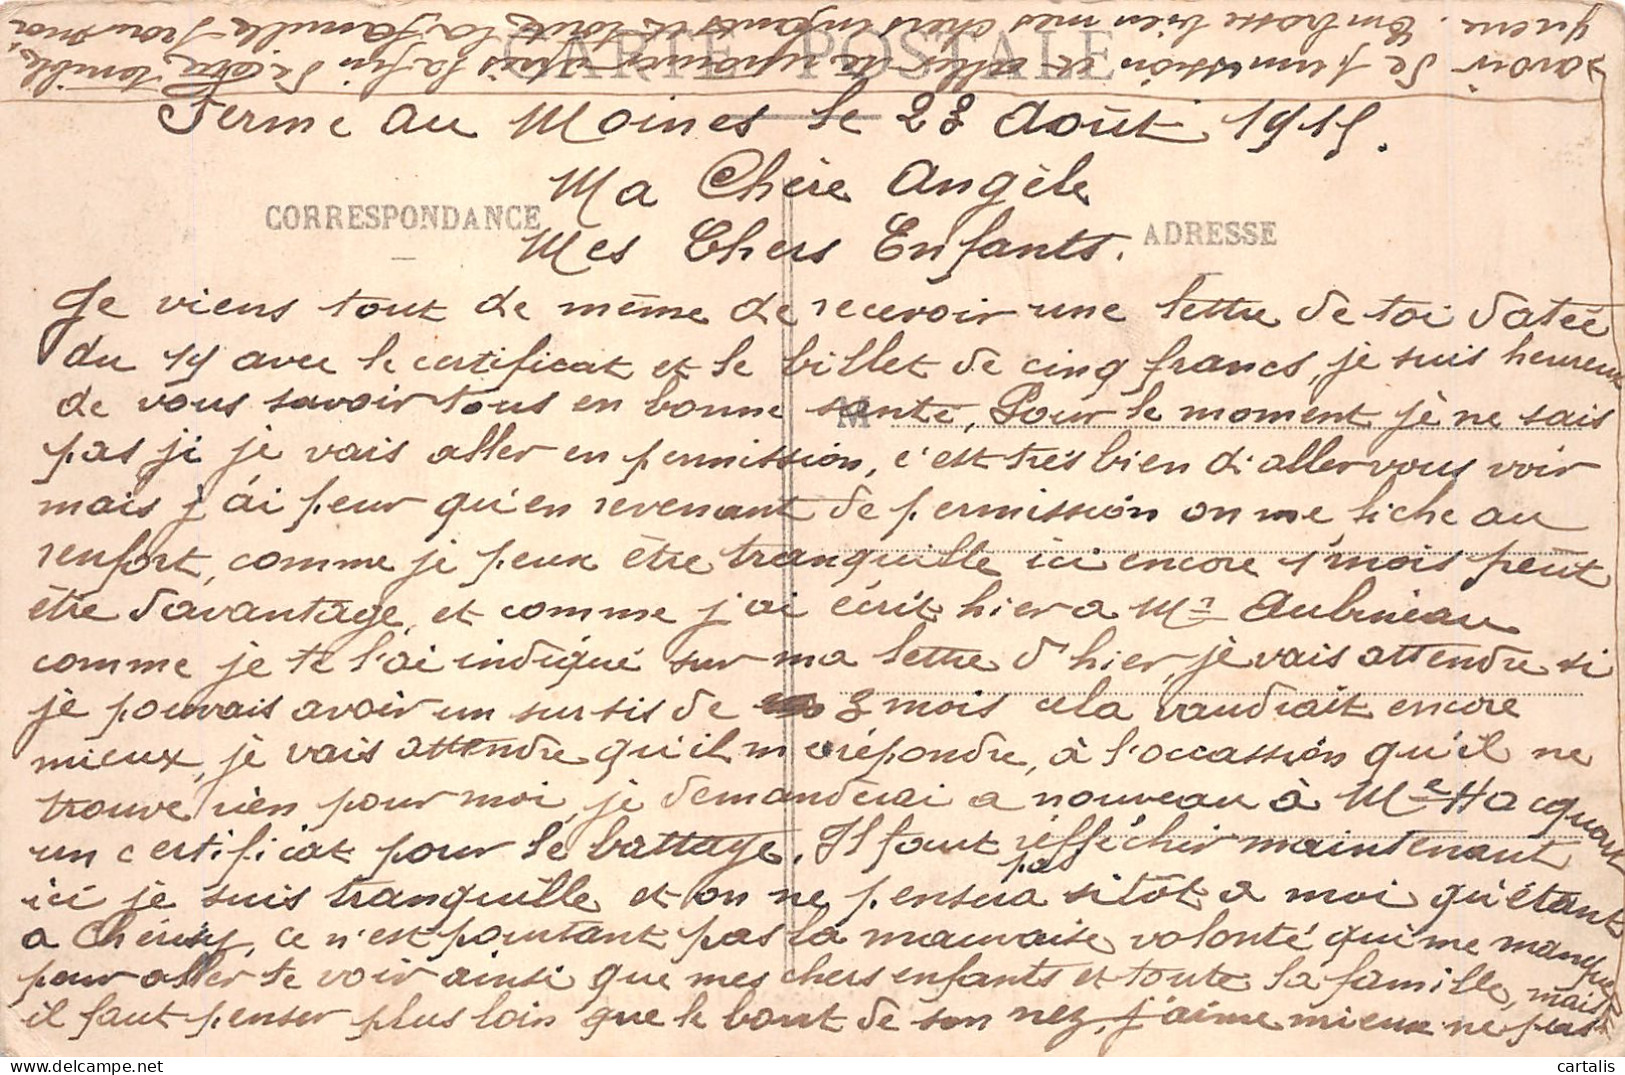 CARTE POSTALE
CORRESPONDANCE
ADRESSE
M
Ferme au Moines le 23 Août 1915.
Ma Chère Angèle
Mes Chers Enfants.
Je viens tout de même de recevoir une lettre de toi datée
du 19 avec le certificat et le billet de cinq francs, je suis heureux
de vous savoir tous en bonne santé, Pour le moment je ne sais
pas si je vais aller en permission, c'est très bien d'aller vous voir
mais j'ai peur qu'en revenant de permission on me fiche au
renfort, comme je peux être tranquille ici encore 1 mois peut
être davantage, et comme j'ai écrit hier a Mr Aubineau
comme je te l'ai indiqué sur ma lettre d'hier, je vais attendre si
je pouvais avoir un sursis de 3 mois cela vaudrait encore
mieux, je vais attendre qu'il me répondre, à l'occassion qu'il ne
trouve rien pour moi, je demanderai a nouveau à Me Hacquart
un certificat pour le battage. Il faut réfféchir maintenant
ici je suis tranquille et on ne pensera pas sitôt a moi qu'étant
a Cherisy, ce n'est pourtant pas la mauvaise volonté qui me manque
pour aller te voir ainsi que mes chers enfants et toute la famille, mais
il faut penser plus loin que le bout de son nez, j'aime mieux ne pas
avoir de permission et aller te rejoindre après la fin de cette terrible
guerre. Embrasse bien mes chers enfants et toute la famille